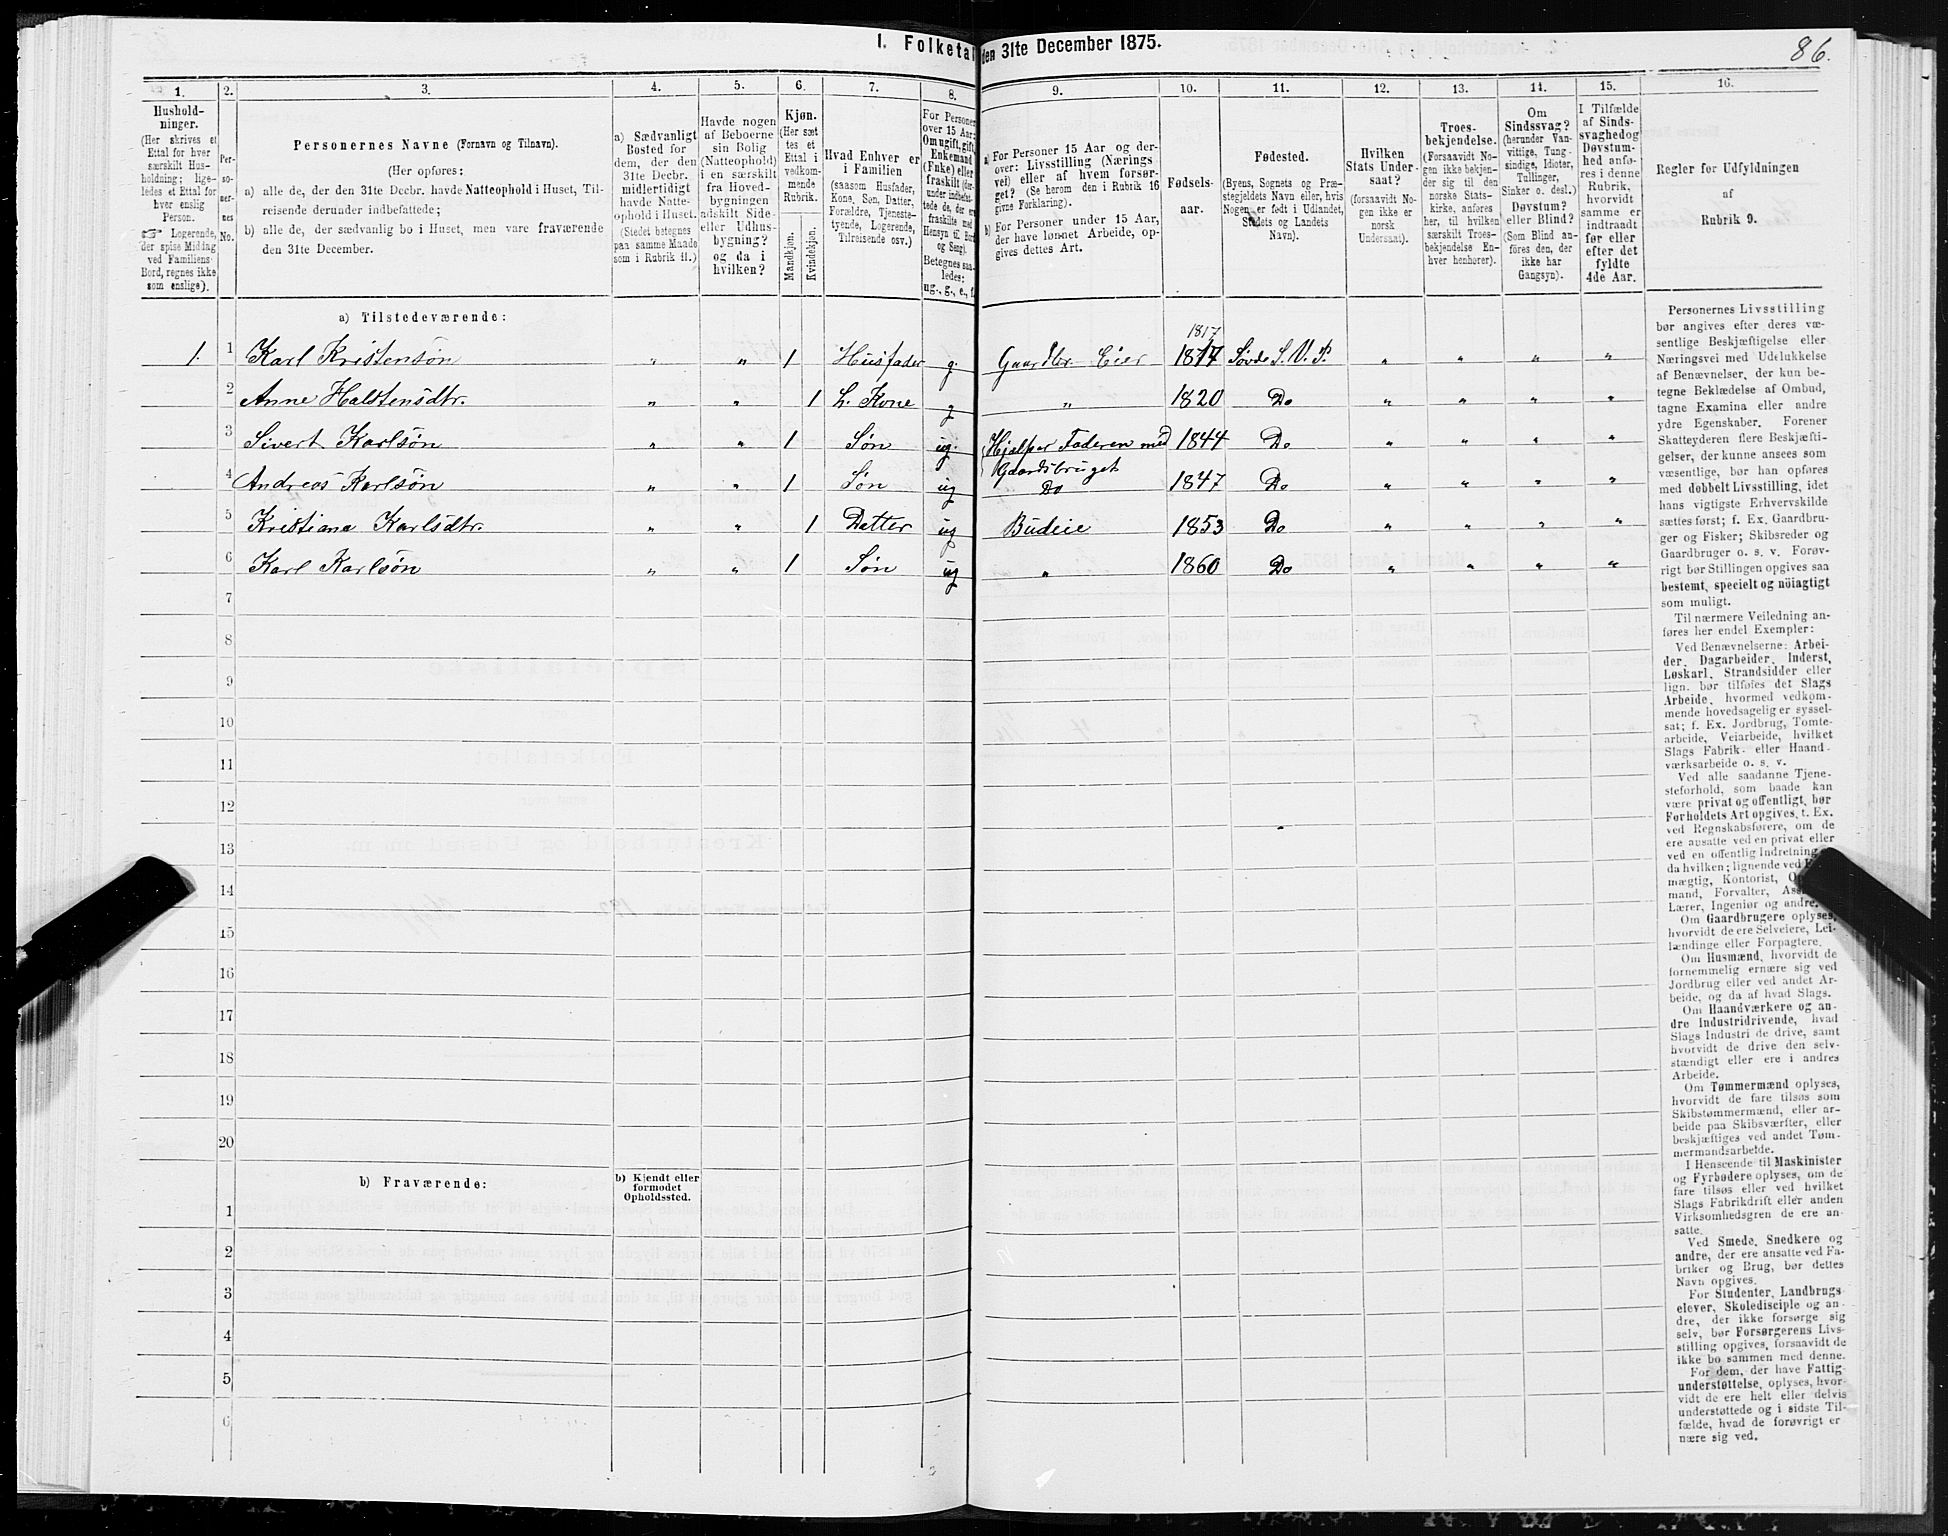 I. Folketal den 31te December 1875.
86.
1.
Hushold-
ninger.
(Her skrives et
Ettal for hver
særskilt Hus-
holdning; lige-
ledes et Ettal for
hver enslig
Person.
☞ Logerende,
der spise Middag
ved Familiens
Bord, regnes ikke
som enslige).
2.
Per-
so-
ner-
nes
No.
3.
Personernes Navne (Fornavn og Tilnavn).
(Her opføres:
a) alle de, der den 31te Decbr. havde Natteophold i Huset, Til-
reisende derunder indbefattede;
b) alle de, der sædvanlig bo i Huset, men vare fraværende
den 31te December.
4.
a) Sædvanligt
Bosted for
dem, der den
31te Decbr.
midlertidigt
havde Natte-
ophold i Huset.
(Stedet betegnes
paa samme Maade
som i Rubrik 11.)
5.
Havde nogen
af Beboerne
sin Bolig
(Natteophold)
i en særskilt
fra Hoved-
bygningen
adskilt Side-
eller Udhus-
bygning?
og da i
hvilken?
6.
Kjøn.
(Her sæt
tes et
Ettal i
vedkom-
mende
Rubrik.
Mandkjøn.
Kvindekjøn.
7.
Hvad Enhver er
i Familien
(saasom Husfader,
Kone, Søn, Datter,
Forældre, Tjeneste-
tyende, Logerende,
Tilreisende osv.)
8.
For Personer
over 15 Aar:
Om ugift, gift,
Enkemand
(Enke) eller
fraskilt (der-
under indbefat-
tede de, der ere
fraskilte med
Hensyn til Bord
og Seng).
Betegnes saa-
ledes:
ug., g., e., f.
9.
a) For Personer 15 Aar og der-
over: Livsstilling (Nærings
vei) eller af hvem forsør-
get? (Se herom den i Rubrik 16
givne Forklaring).
b) For Personer under 15 Aar,
der have lønnet Arbeide, op-
gives dettes Art.
10.
Fødsels-
aar.
11.
Fødested.
(Byens, Sognets og Præ-
stegjeldets Navn eller, hvis
Nogen er født i Udlandet,
Stedets og Landets
Navn).
12.
Hvilken
Stats Under-
saat?
(forsaavidt No-
gen ikke er
norsk
Undersaat).
13.
Troes-
bekjendelse.
(Forsaavidt No-
gen ikke bekjen-
der sig til den
norske Stats-
kirke, anføres
her, til hvilken
særskilt Troes-
bekjendelse En-
hver henhører).
14.
Om
Sindssvag?
(herunder Van-
vittige, Tung-
sindige, Idioter,
Sinker o. desl.)
Døvstum?
eller Blind?
(Som Blind an-
føres den, der
ikke har
Gangsyn).
15.
I Tilfælde
af Sinds-
svaghed og
Døvstum-
hed anfø-
res i denne
Rubrik,
hvorvidt
samme er
indtraadt
før eller
efter det
fyldte
4de Aar.
16.
Regler for Udfyldningen
af
Rubrik 9.
a) Tilstedeværende:
1. 1 Karl Kristensøn " " 1 Husfader g. Gaardbr. Eier 1817 1817 Søvde S. V. P. " " " "
2 Anne Halstensdtr. " " 1 h. Kone g " 1820 Do " " " "
3 Sivert Karlsøn " " 1 Søn ug. Hjælper Faderen med 1844 Do " " " "
Gaardsbruget
4 Andreas Karlsøn " " 1 Søn ug Do 1847 Do " " " "
5 Kristiana Karlsdtr. " " 1 Datter ug Budeie 1853 Do " " " "
6 Karl Karlsøn " " 1 Søn ug " 1860 Do " " " "
7
8
9
10
11
12
13
14
15
16
17
18
19
20
b) Fraværende:
b) Kjendt eller
formodet
Opholdssted.
1
2
3
4
5
6
Personernes Livsstilling
bør angives efter deres væ-
sentlige Beskjæftigelse eller
Næringsvei med Udelukkelse
af Benævnelser, der kun be-
tegne Beklædelse af Ombud,
tagne Examina eller andre
ydre Egenskaber. Forener
Skatteyderen flere Beskjæfti-
gelser, der kunne ansees som
væsentlige, bør han opføres
med dobbelt Livsstilling, idet
hans vigtigste Erhvervskilde
sættes først; f. Ex. Gaardbru-
ger og Fisker; Skibsreder og
Gaardbruger o. s. v. Forøv-
rigt bør Stillingen opgives saa
bestemt, specielt og nöiagtigt
som muligt.
Til nærmere Veiledning an-
føres her endel Exempler:
Ved Benævnelserne: Arbei-
der, Dagarbeider, Inderst,
Løskarl, Strandsidder eller
lign. bør tilføies det Slags
Arbeide, hvormed vedkom-
mende hovedsagelig er syssel-
sat; f. Ex. Jordbrug, Tomte-
arbeide, Veiarbeide, hvilket
Slags Fabrik- eller Haand-
værksarbeide o. s. v.
Ved alle saadanne Tjene-
steforhold, som baade kan
være privat og offentligt, bør
Forholdets Art opgives, f. Ex.
ved Regnskabsførere, om de
ere ansatte ved en privat eller
ved en offentlig Indretning
da hvilken; lignende ved
mægtig, Kontorist,
mand, Forvalter,
Lærer, Ingeniør og andre.
Om Gaardbrugere oplyses,
hvorvidt de ere Selveiere, Lei-
lændinge eller Forpagtere.
Om Husmænd, hvorvidt de
fornemmelig ernære sig ved
Jordbrug eller ved andet Ar-
beide, og da af hvad Slags.
Om Haandværkere og an-
dre Industridrivende, hvad
Slags Industri de drive, samt
hvorvidt de drive den selv-
stændigt eller ere i andres
Arbeide.
Om Tømmermænd oplyses,
hvorvidt de fare tilsøs som
Skibstømmermænd, eller ar-
beide paa Skibsværfter, eller
beskjæftiges ved andet Tøm-
mermandsarbeide.
I Henseende til Maskinister
og Fyrbødere oplyses, om de
fare tilsøs eller ved hvilket
Slags Fabrikdrift eller anden
Virksomhedsgren de ere an-
satte.
Ved Smede, Snedkere og
andre, der ere ansatte ved Fa-
briker og Brug, bør dettes
Navn opgives.
For Studenter, Landbrugs-
elever, Skoledisciple og an-
dre, der ikke forsørge sig
selv, bør Forsørgerens Livs-
stilling opgives, forsaavidt de
ikke bo sammen med denne.
For dem, der have Fattig-
understøttelse, oplyses, hvor-
vidt de ere helt eller delvis
understøttede og i sidste Til-
fælde, hvad de forøvrigt er-
nære sig ved.